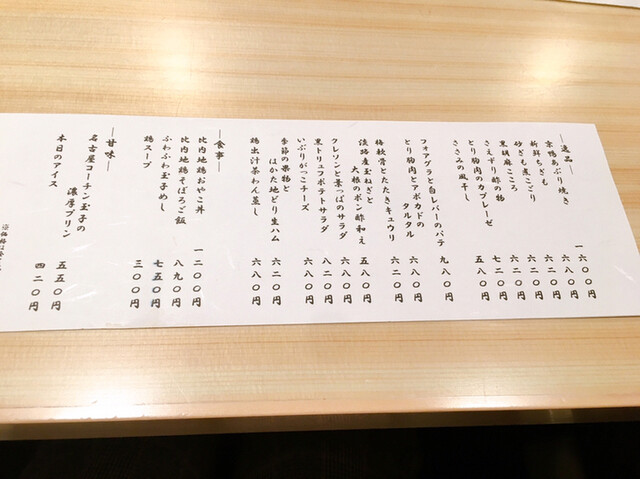 ―逸品―
京鴨あぶり焼き 一六〇〇円
新鮮ちぎも 六二〇円
砂ぎも煮こごり 六二〇円
黒胡麻こころ 六二〇円
さえずり酢の物 六二〇円
とり胸肉のカプレーゼ 七二〇円
ささみの風干し 五八〇円
フォアグラと白レバーのパテ 九八〇円
とり胸肉とアボカドの
タルタル 六八〇円
梅軟骨とたたきキュウリ 六二〇円
淡路産玉ねぎと
大根のポン酢和え 五八〇円
クレソンと葉っぱのサラダ 六八〇円
黒トリュフポテトサラダ 八二〇円
いぶりがっこチーズ 六八〇円
季節の果物と
はかた地どり生ハム 六二〇円
鶏出汁茶わん蒸し 六八〇円
―食事―
比内地鶏おやこ丼 一二〇〇円
比内地鶏そぼろご飯 八九〇円
ふわふわ玉子めし 七五〇円
鶏スープ 三〇〇円
―甘味―
名古屋コーチン玉子の
濃厚プリン 五五〇円
本日のアイス 四二〇円